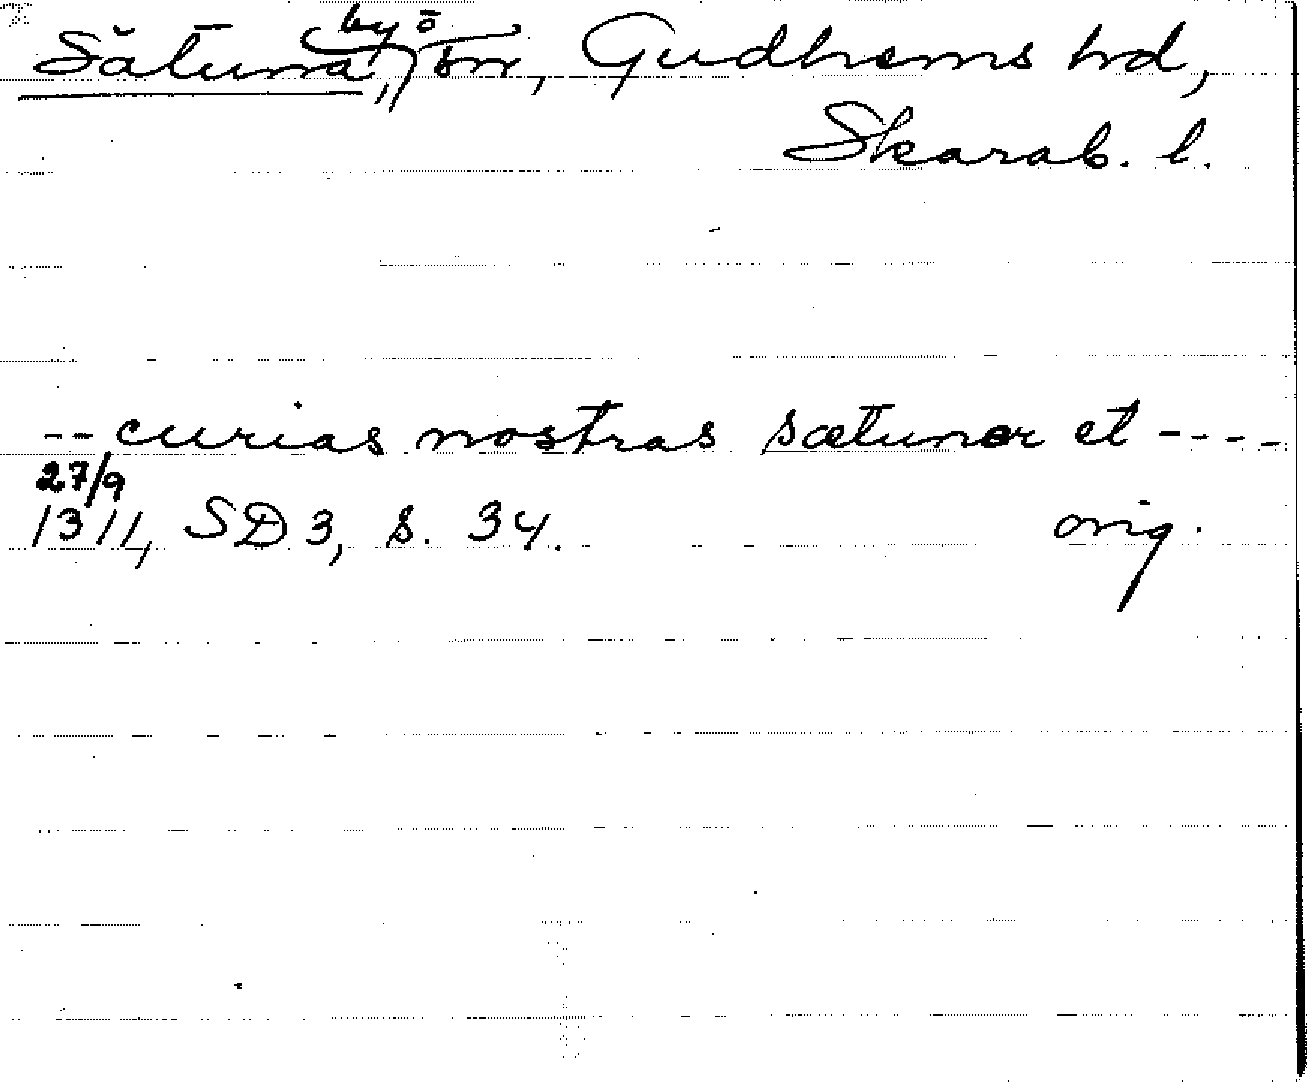 Sätuna, by o tnr, Gudhems hrd,
Skarab. l.
-- curias nostras sætuner et ----
27/9
1311, SD 3, s. 34. orig.